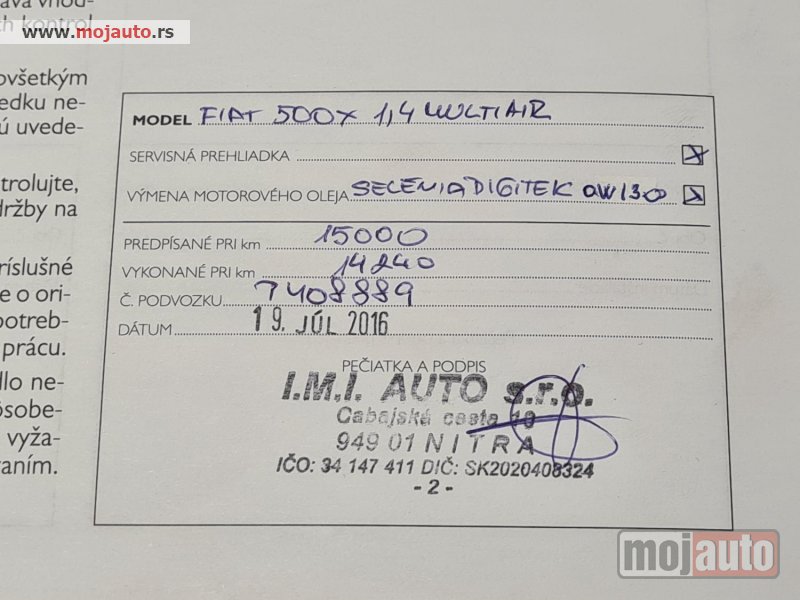 ava vnou-
ch kontrol
www.mojauto.rs
ovšetkým
edku ne-
ú uvede-
trolujte,
držby na
ríslušné
e o ori-
potreb-
prácu.
dlo ne-
ôsobe-
vyža-
aním.
MODEL FIAT 500X 1,4 MULTIAIR
SERVISNÁ PREHLIADKA
VÝMENA MOTOROVÉHO OLEJA SELENIA DIGITEK 0W/30
PREDPÍSANÉ PRI km 15000
VYKONANÉ PRI km 14240
Č. PODVOZKU 7408889
DÁTUM 19. JÚL 2016
PEČIATKA A PODPIS
I.M.I. AUTO s.r.o.
Cabajská cesta 10
949 01 NITRA
IČO: 34 147 411 DIČ: SK2020408324
- 2 -
mojauto